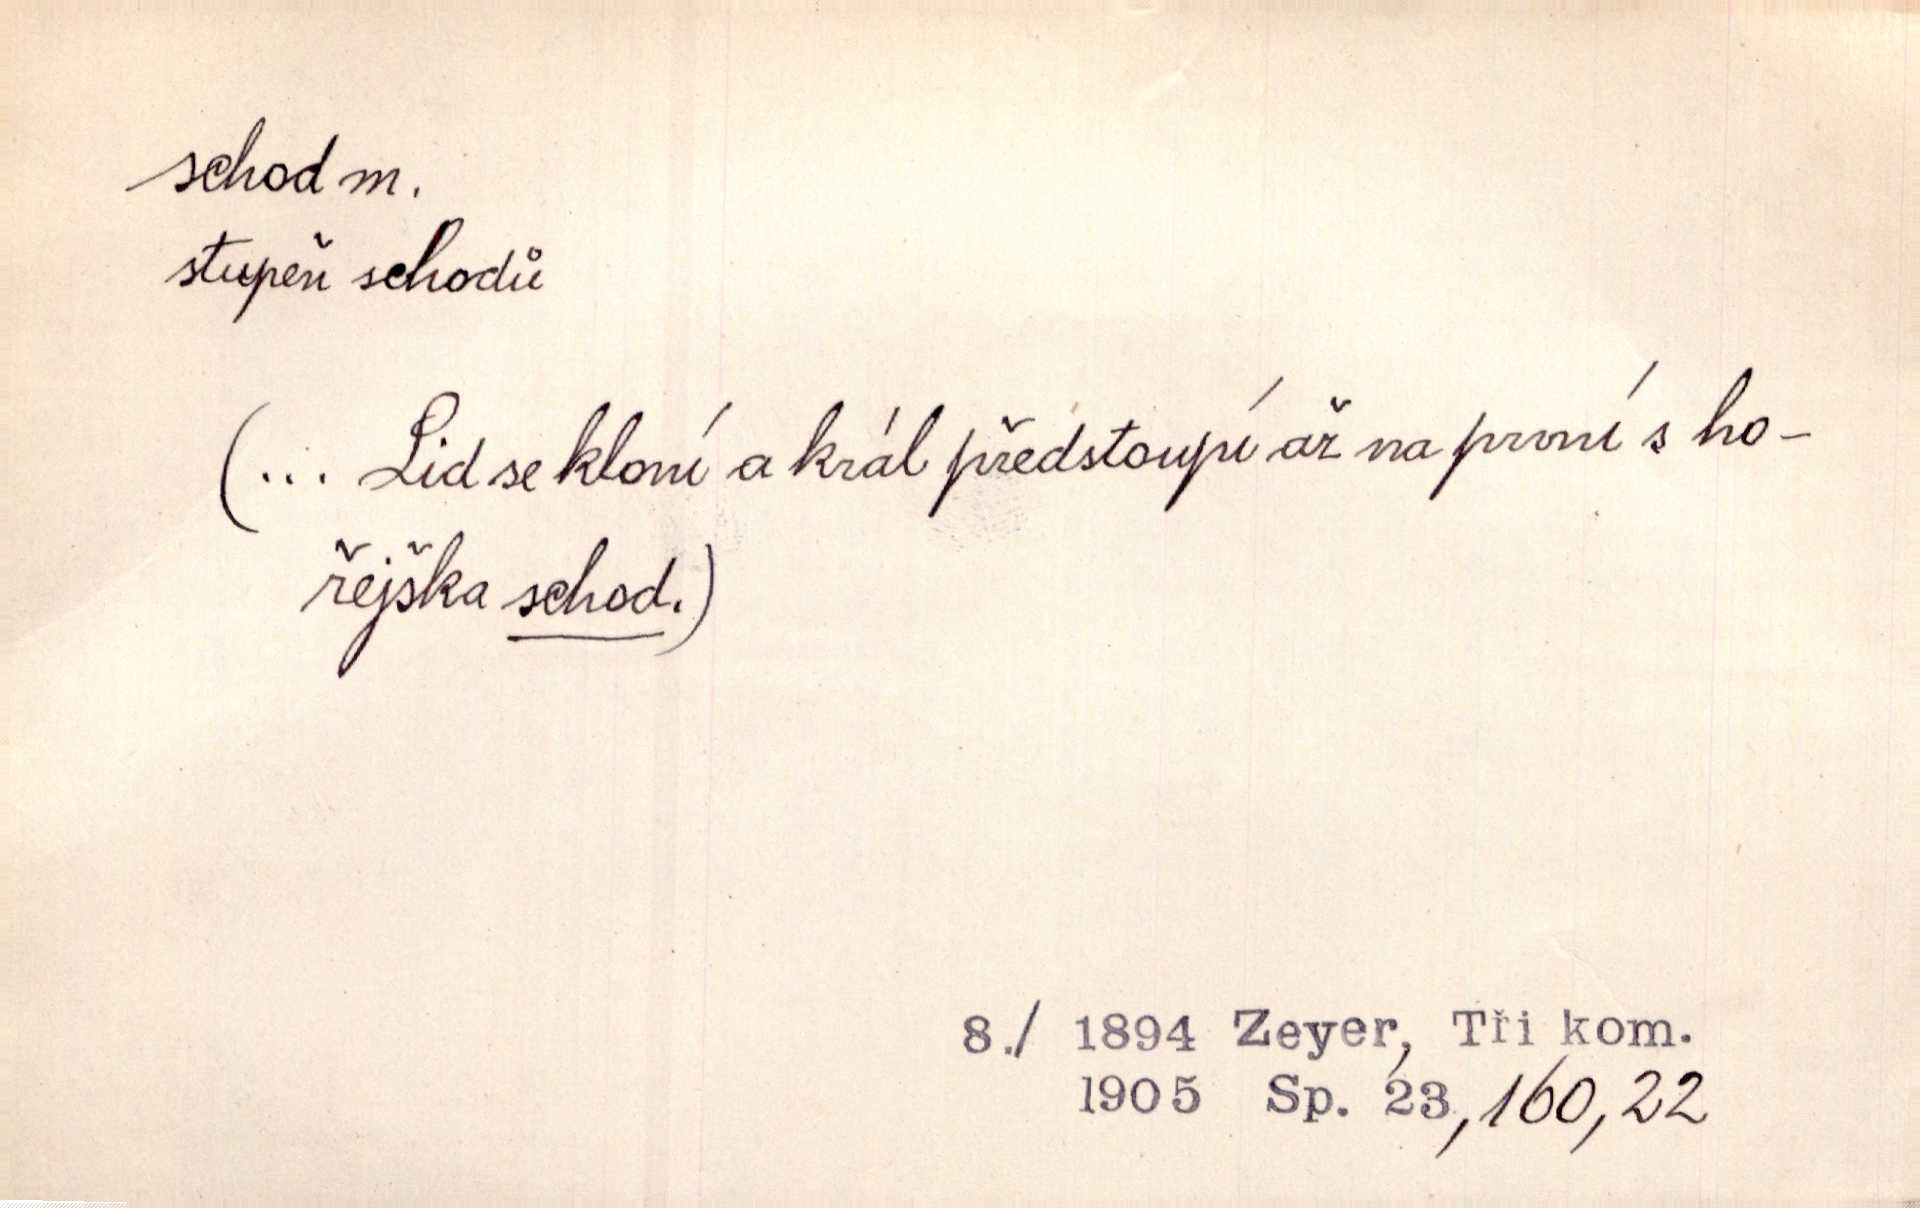 schod m.
stupeň schodů
(... Lid se kloní a král předstoupí až na první s ho-
řejška schod.)
8./ 1894 Zeyer, Tři kom.
1905 Sp. 23,160,22